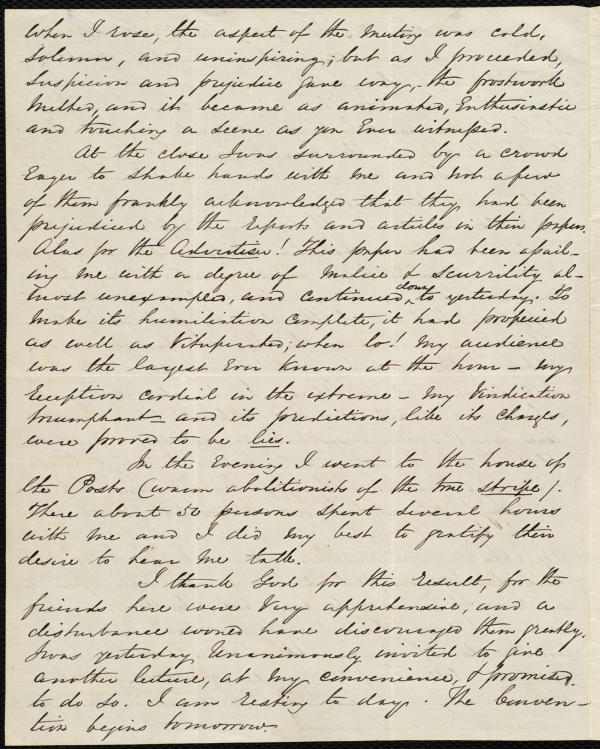 When I rose, the aspect of the meeting was cold,
solemn, and uninspiring; but as I proceeded,
suspicion and prejudice gave way, the frostwork
melted, and it became as animated, enthusiastic
and touching a scene as you ever witnessed.
At the close I was surrounded by a crowd
eager to shake hands with me and not a few
of them frankly acknowledged that they had been
prejudiced by the reports and articles in their papers.
Alas for the Advertiser! This paper had been assail-
ing me with a degree of malice & scurrility al-
most unexampled, and continued down to yesterday. To
make its humiliation complete, it had prophesied
as well as vituperated; when lo! my audience
was the largest ever known at the hour – my
reception cordial in the extreme – my vindication
triumphant – and its predictions, like its charges,
were proved to be lies.
In the evening I went to the house of
the Posts (warm abolitionists of the true stripe).
There about 50 persons spent several hours
with me and I did my best to gratify their
desire to hear me talk.
I thank God for this result, for the
friends here were very apprehensive, and a
disturbance would have discouraged them greatly.
I was yesterday unanimously invited to give
another lecture, at my convenience, & promised
to do so. I am resting to day. The Conven-
tion begins tomorrow.